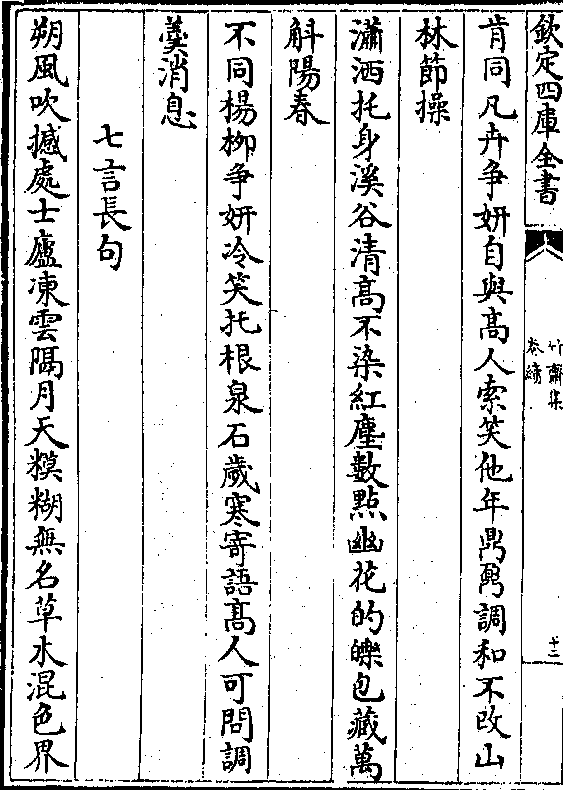 欽定四庫全書
竹齋集
卷續
十二
肯同凡卉争妍自與髙人索笑他年鼎鼐調和不改山
林節操
瀟洒托身溪谷清髙不染紅塵數點幽花的皪包藏萬
斛陽春
不同楊柳争妍冷笑托根泉石嵗寒寄語髙人可問調
羮消息
七言長句
朔風吹撼處士廬凍雲隔月天糢糊無名草木混色界